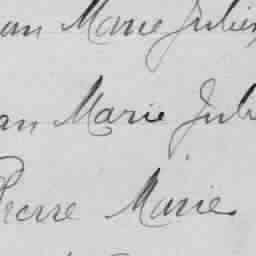 an Marie Julien
an Marie Juli
Pierre Marie